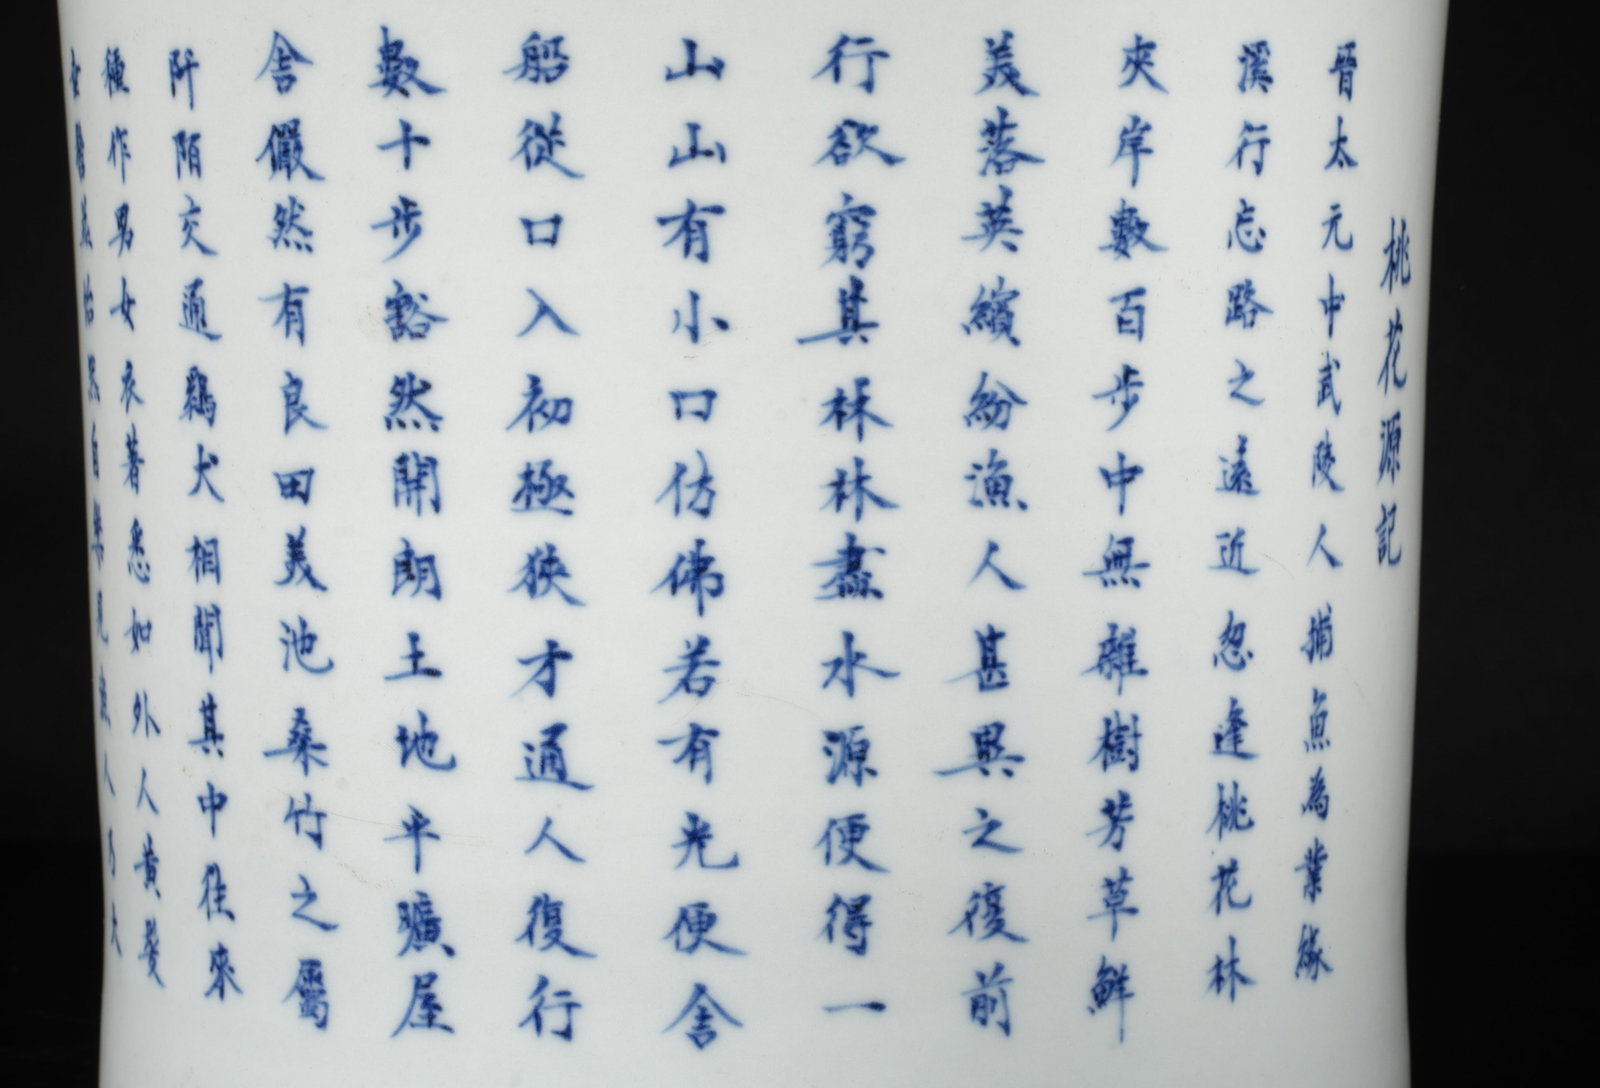 桃花源記
晉太元中武陵人捕魚為業緣
溪行忘路之遠近忽逢桃花林
夾岸數百步中無雜樹芳草鮮
美落英繽紛漁人甚異之復前
行欲窮其林林盡水源便得一
山山有小口仿佛若有光便舍
船從口入初極狹才通人復行
數十步豁然開朗土地平曠屋
舍儼然有良田美池桑竹之屬
阡陌交通鷄犬相聞其中往來
種作男女衣著悉如外人黃髮
怡然自樂見漁人乃大